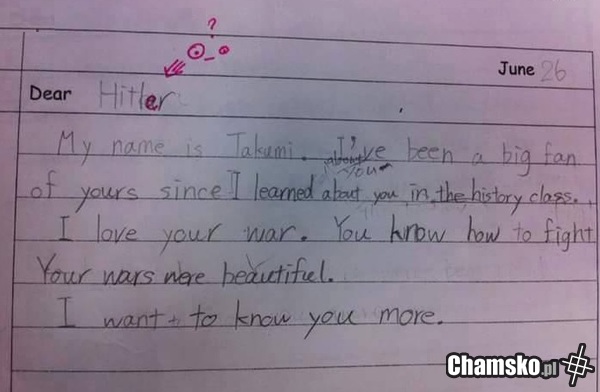 ?
June 26
Dear Hitler
My name is Takumi. I've been a big fan
about you
of yours since I learned about you in the history class.
I love your war. You know how to fight
Your wars were beautiful.
I want to know you more.
Chamsko.pl